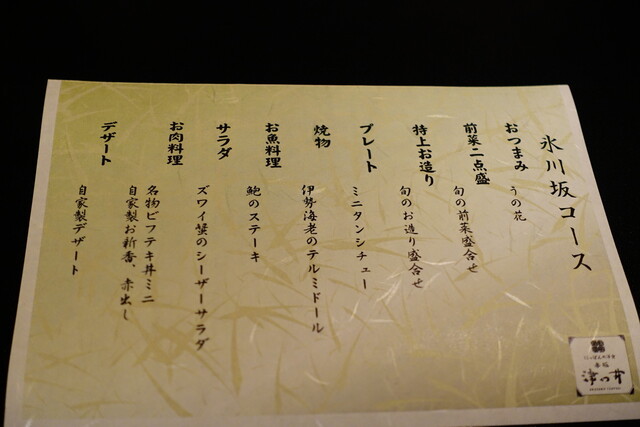 氷川坂コース
おつまみ
うの花
前菜二点盛
旬の前菜盛合せ
特上お造り
旬のお造り盛合せ
プレート
ミニタンシチュー
焼物
伊勢海老のテルミドール
お魚料理
鮑のステーキ
サラダ
ズワイ蟹のシーザーサラダ
お肉料理
名物ビフテキ丼ミニ
自家製お新香、赤出し
デザート
自家製デザート
にっぽんの洋食
赤坂
津つ井